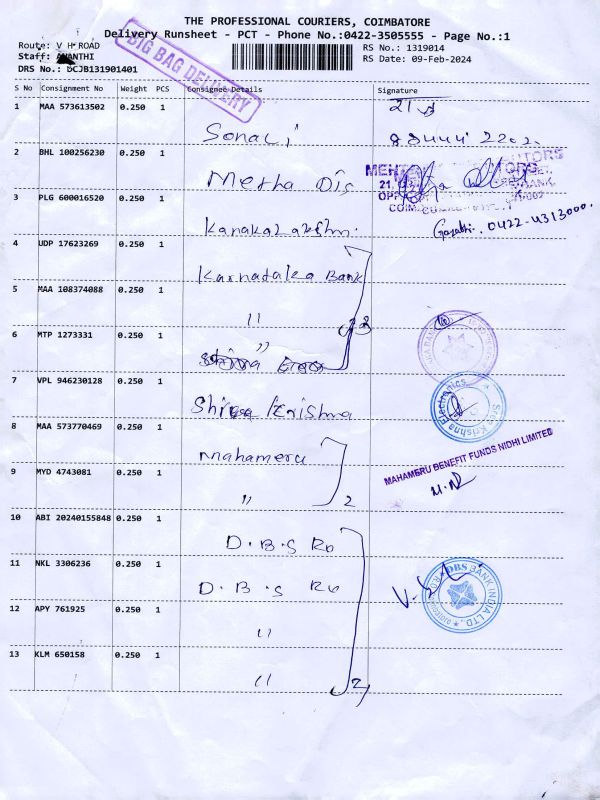 THE PROFESSIONAL COURIERS, COIMBATORE
Delivery Runsheet - PCT - Phone No.:0422-3505555 - Page No.:1
Route: V H ROAD
RS No.: 1319014
Staff: AVANTHI
RS Date: 09-Feb-2024
DRS No.: DCJB131901401
BIG BAG DELIVERY
S No Consignment No Weight PCS Consignee Details Signature
1 MAA 573613502 0.250 1
Sonali
2 BHL 100256230 0.250 1
Metha Dis
3 PLG 600016520 0.250 1
Kanakalakshmi
Gayathri. 0422-4313000.
4 UDP 17623269 0.250 1
Karnataka Bank
5 MAA 108374088 0.250 1
"
3
6 MTP 1273331 0.250 1
"
7 VPL 946230128 0.250 1
Shree Krishna
Sree Krishna Electronics
8 MAA 573770469 0.250 1
Mahameru
MAHAMERU BENEFIT FUNDS NIDHI LIMITED
9 MYD 4743081 0.250 1
"
2
10 ABI 20240155848 0.250 1
D.B.S Ro
11 NKL 3306236 0.250 1
D.B.S Ro
DBS BANK INDIA LTD.
12 APY 761925 0.250 1
"
13 KLM 650158 0.250 1
"